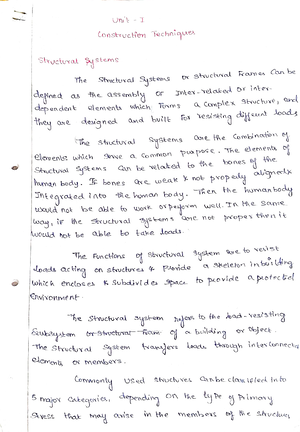 Unit - I
Construction Techniques
Structural Systems
The Structural Systems or Structural Frames can be
defined as the assembly or Inter-related or inter-
dependent elements which forms a complex structure, and
they are designed and built for resisting different loads.
The structural systems are the Combination of
Elements which serve a common purpose. The elements of
Structural Systems can be related to the bones of the
human body. If bones are weak & not properly aligned &
Integrated into the human body. Then the human body
would not be able to work or perform well. In the same
way, if the structural systems are not proper then it
would not be able to take loads.
The Functions of Structural System are to resist
loads acting on structures & Provide a skeleton in building
which encloses & Subdivides space to provide a protected
Environment.
The Structural system refers to the load-resisting
Subsystem or structural Frame of a building or object.
The Structural System transfers loads through interconnected
elements or members.
Commonly used structures can be classified into
5 major Categories, depending on the type of primary
stress that may arise in the members of the structures